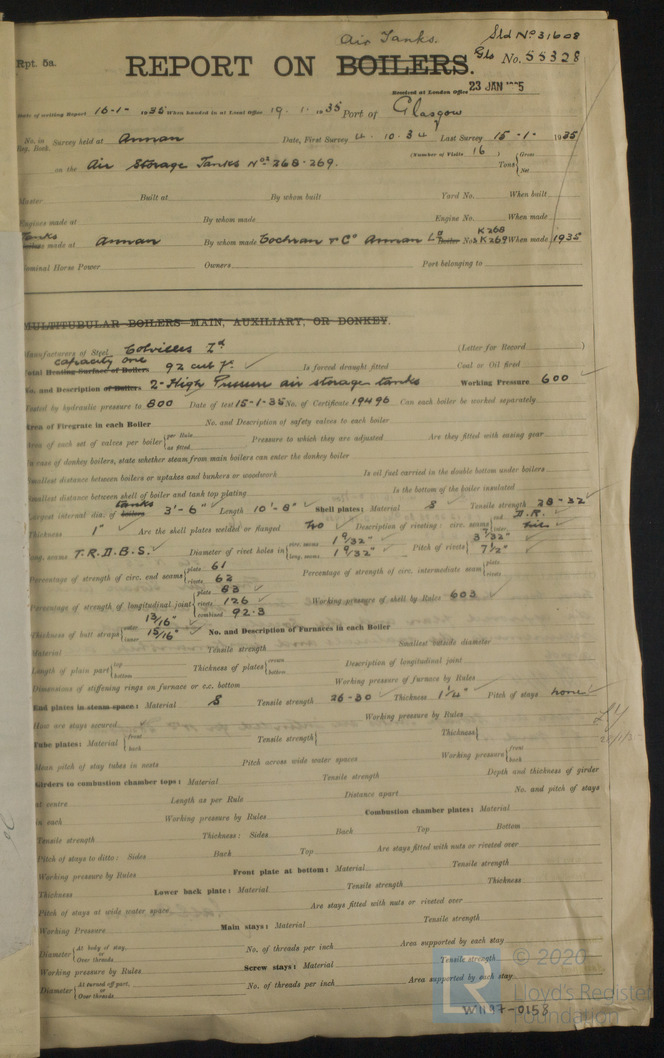 Air Tanks. Sld No 31608
Rpt. 5a. Gls No. 55328
REPORT ON BOILERS.
Received at London Office 23 JAN
Date of writing Report 16-1- 1935 When handed in at Local Office 19. 1. 1935 Port of Glasgow
No. in Reg. Book. Survey held at Annan Date, First Survey 4. 10. 34 Last Survey 15-1- 1935
on the Air Storage Tanks Nos 268-269. (Number of Visits 16 ) Tons { Gross Net
Master Built at By whom built Yard No. When built
Engines made at By whom made Engine No. When made
Tanks made at Annan By whom made Cochran & Co Annan Ld Boiler Nos K268 K269 When made 1935
Nominal Horse Power Owners Port belonging to
MULTITUBULAR BOILERS MAIN, AUXILIARY, OR DONKEY.
Manufacturers of Steel Colvilles Ld (Letter for Record )
capacity one
Total Heating Surface of Boilers 92 cub ft. Is forced draught fitted Coal or Oil fired
No. and Description of Boilers 2-High Pressure air storage tanks Working Pressure 600
Tested by hydraulic pressure to 800 Date of test 15-1-35 No. of Certificate 19496 Can each boiler be worked separately
Area of Firegrate in each Boiler No. and Description of safety valves to each boiler
Area of each set of valves per boiler { per Rule as fitted Pressure to which they are adjusted Are they fitted with easing gear
In case of donkey boilers, state whether steam from main boilers can enter the donkey boiler
Smallest distance between boilers or uptakes and bunkers or woodwork Is oil fuel carried in the double bottom under boilers
Smallest distance between shell of boiler and tank top plating Is the bottom of the boiler insulated
Largest internal dia. of boilers tanks 3'-6" Length 10'-8" Shell plates: Material S Tensile strength 28-32
Thickness 1" Are the shell plates welded or flanged No Description of riveting: circ. seams { end D.R. inter.
long. seams T.R.D.B.S. Diameter of rivet holes in { circ. seams 1 9/32" long. seams 1 9/32" Pitch of rivets { 3 7/32" 7 1/2"
Percentage of strength of circ. end seams { plate 61 rivets 62 Percentage of strength of circ. intermediate seam { plate rivets
Percentage of strength of longitudinal joint { plate 83 rivets 126 combined 92.3 Working pressure of shell by Rules 603
Thickness of butt straps { outer 13/16" inner 15/16" No. and Description of Furnaces in each Boiler
Material Tensile strength Smallest outside diameter
Length of plain part { top bottom Thickness of plates { crown bottom Description of longitudinal joint
Dimensions of stiffening rings on furnace or c.c. bottom Working pressure of furnace by Rules
End plates in steam space: Material S Tensile strength 26-30 Thickness 1 1/4" Pitch of stays none
How are stays secured Working pressure by Rules
Tube plates: Material { front back Tensile strength { Thickness {
Mean pitch of stay tubes in nests Pitch across wide water spaces Working pressure { front back
Girders to combustion chamber tops: Material Tensile strength Depth and thickness of girder
at centre Length as per Rule Distance apart No. and pitch of stays
in each Working pressure by Rules Combustion chamber plates: Material
Tensile strength Thickness: Sides Back Top Bottom
Pitch of stays to ditto: Sides Back Top Are stays fitted with nuts or riveted over
Working pressure by Rules Front plate at bottom: Material Tensile strength
Thickness Lower back plate: Material Tensile strength Thickness
Pitch of stays at wide water space Are stays fitted with nuts or riveted over
Working Pressure Main stays: Material Tensile strength
Diameter { At body of stay, or Over threads No. of threads per inch Area supported by each stay
Working pressure by Rules Screw stays: Material Tensile strength
Diameter { At turned off part, or Over threads No. of threads per inch Area supported by each stay
© 2020
LR Lloyd's Register Foundation
W1197-0158